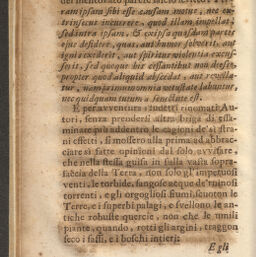 ram ipsam sibi esse causam motus, nec ex-
trinsecus incurrere, quod illam impellat,
sed intra ipsam, & ex ipsa quasdam partes
ejus desidere, quas, aut humor solverit, aut
ignis exederit, aut spiritus violentia excus-
serit, sed quoque his cessantibus non deesse,
propter quod aliquid abscedat, aut revella-
tur, nam jam immo vetustate labuntur,
nec quidquam tutum a senectute est.
E per avventura i sudetti rinomati Au-
tori, senza prendersi altra briga di esa-
minare più addentro le cagioni de' sì stra-
ni effetti, si mossero sulla prima ad abbrac-
ciare sì fatte opinioni dal solo avvisare,
che nella stessa guisa in sulla vasta sopra-
faccia della Terra, non solo gl' impetuosi
venti, le torbide, fangose acque de' rapidi
torrenti, e gli orgogliosi fiumi, scuoton le
Terre, e i superbi palagi, e svellono le an-
tiche robuste quercie, non che le umili
piante, quando, rotti gli argini, traggon
seco i sassi, e i boschi intieri:
Egli